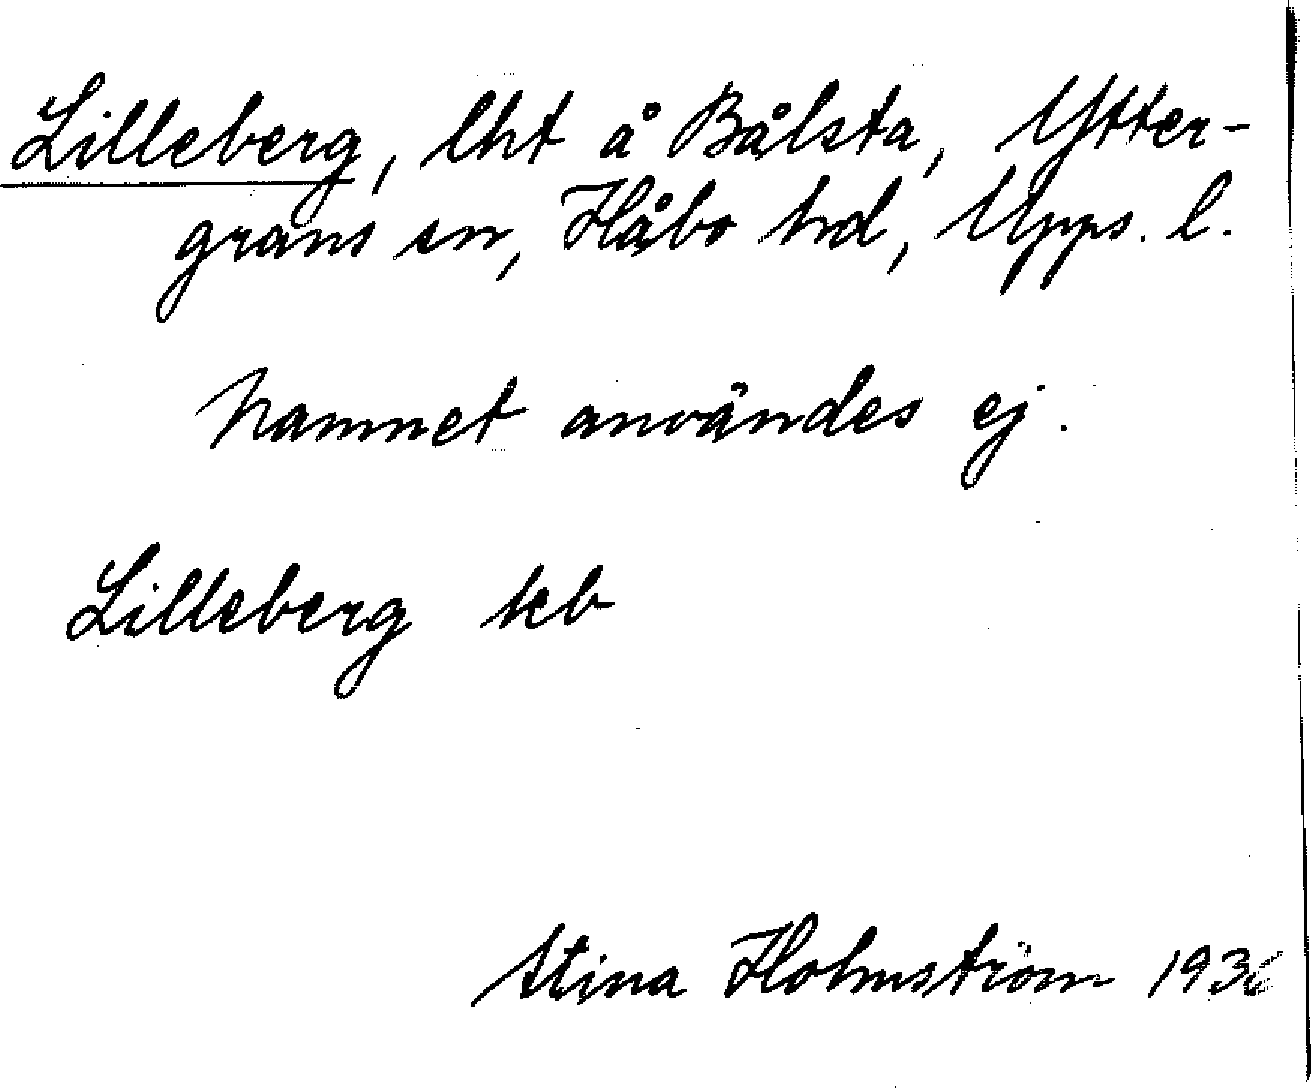 Lilleberg, lht å Bålsta, Ytter-
grans sn, Håbo hd, Upps. l.
Namnet användes ej.
Lilleberg kb
Stina Holmström 1936